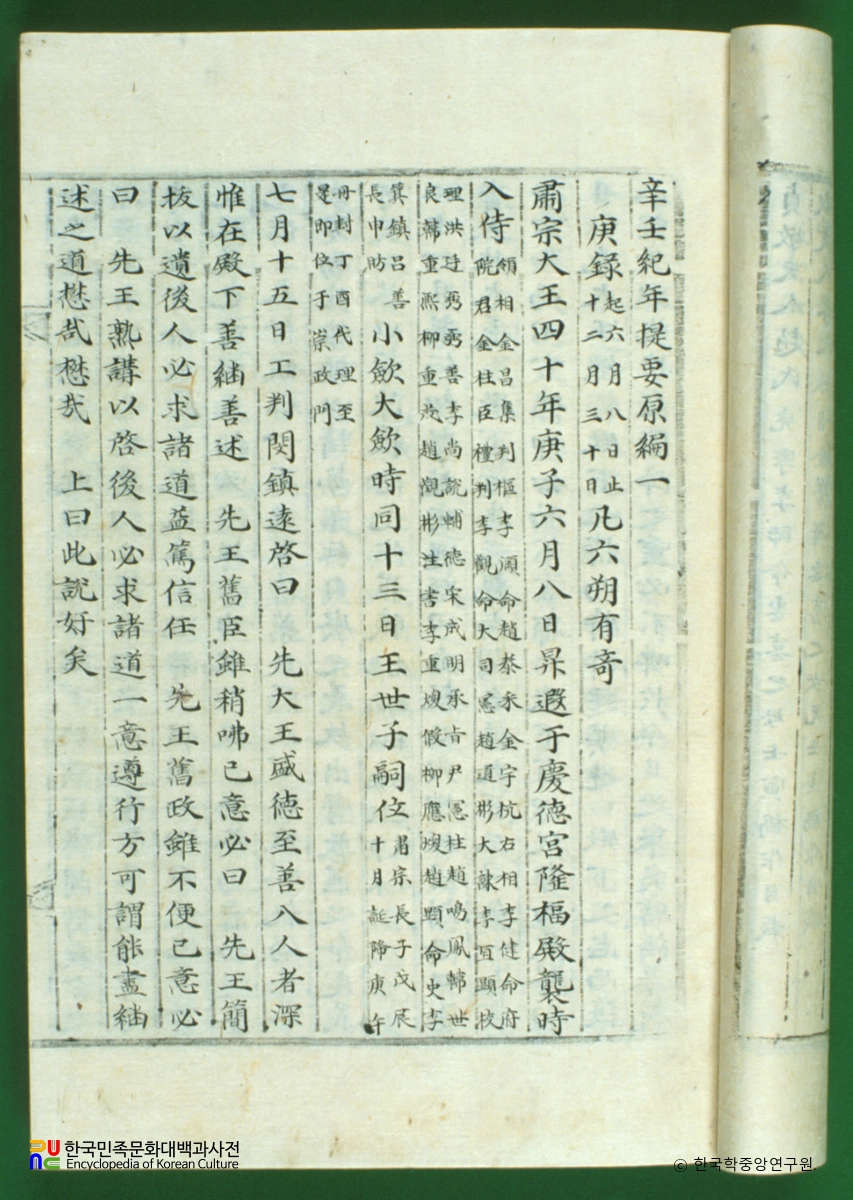 辛壬紀年提要原編一
庚錄起六月八日止十二月三十日凡六朔有奇
肅宗大王四十年庚子六月八日昇遐于慶德宮隆福殿襲時
入侍領相金昌集判樞李頤命趙泰采金宇杭右相李健命府院君金柱臣禮判李觀命大司憲趙道彬大諫李宜顯校
理洪廷弼弼善李尚說輔德宋成明承旨尹憲柱趙鳴鳳韓世良韓重熙柳重茂趙觀彬注書李重煥假柳應煥趙顯命史李
箕鎮呂善長申昉小歛大歛時同十三日王世子嗣位肅宗長子戊辰十月誕降庚午
冊封丁酉代理至是即位于崇政門
七月十五日工判閔鎮遠啓曰 先大王盛德至善入人者深
惟在殿下善繼善述 先王舊臣雖稍咈己意必曰 先王簡
拔以遺後人必求諸道益篤信任 先王舊政雖不便己意必
曰 先王熟講以啓後人必求諸道一意遵行方可謂能盡繼
述之道懋哉懋哉 上曰此說好矣
한국민족문화대백과사전
Encyclopedia of Korean Culture
© 한국학중앙연구원.